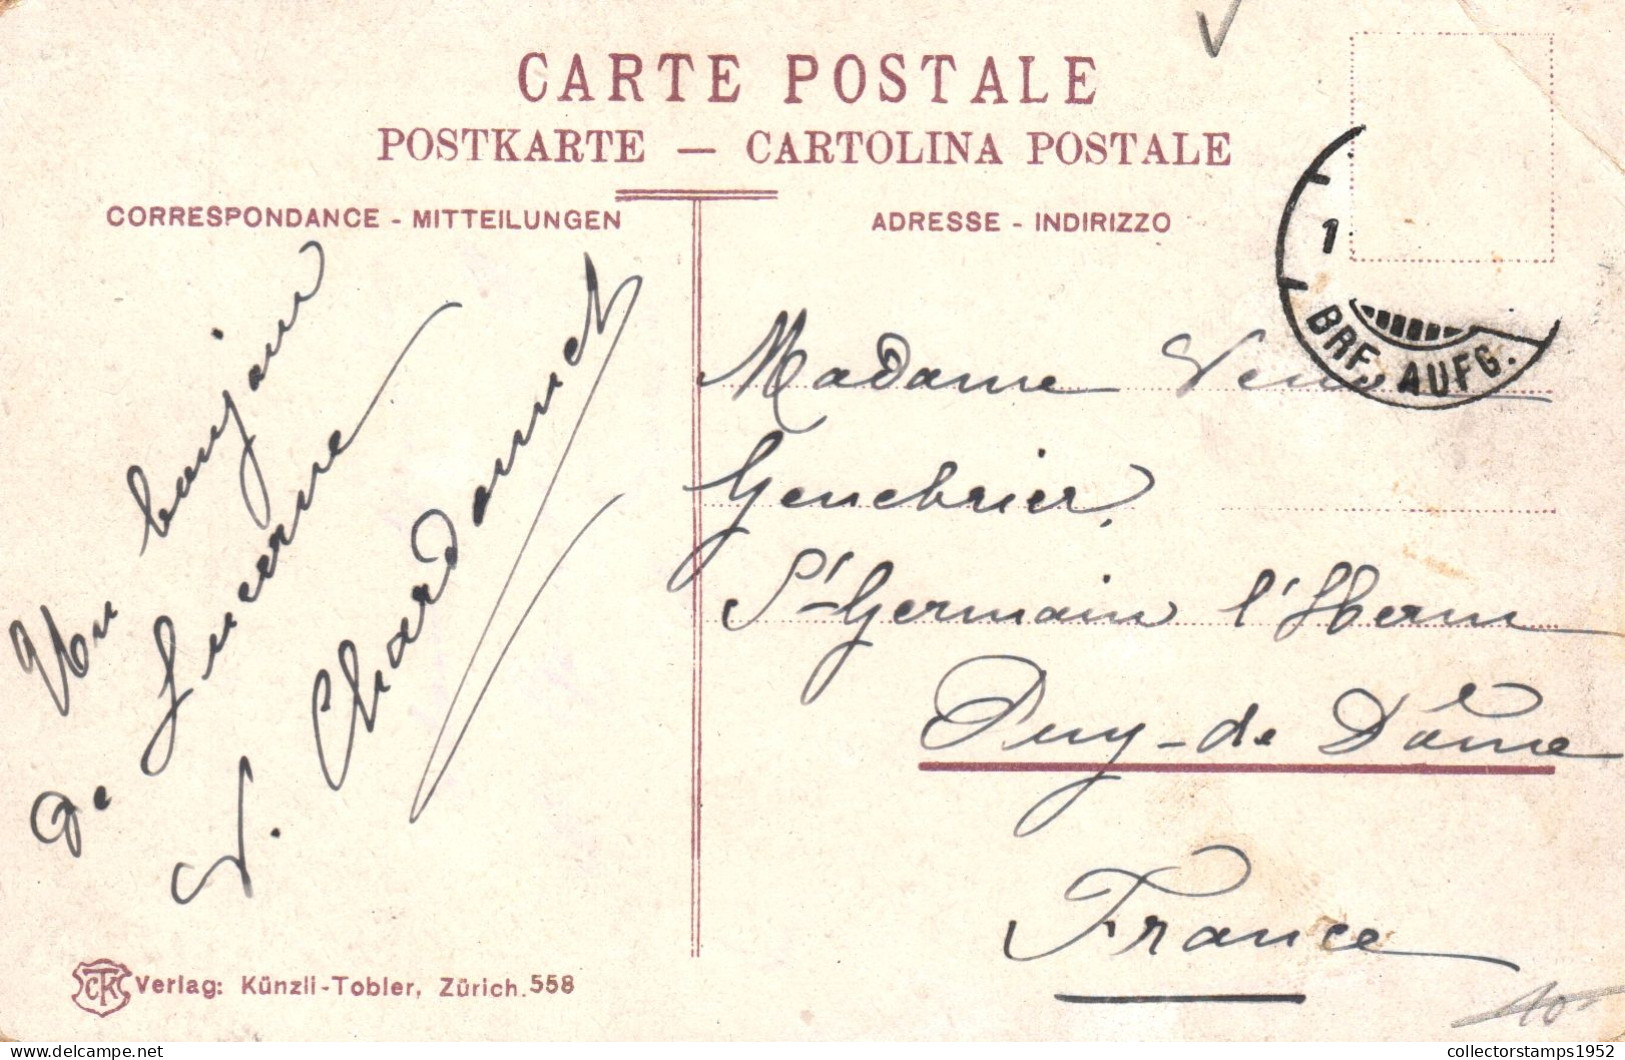 CARTE POSTALE
POSTKARTE — CARTOLINA POSTALE
CORRESPONDANCE - MITTEILUNGEN
ADRESSE - INDIRIZZO
1
BRF. AUFG.
Un bonjour
de Lucerne
V. Chardonnet
Madame Veuve
Genebrier,
St-Germain l'Herm
Puy-de Dôme
France
CTK
Verlag: Künzli-Tobler, Zürich. 558
10
collectorstamps1952